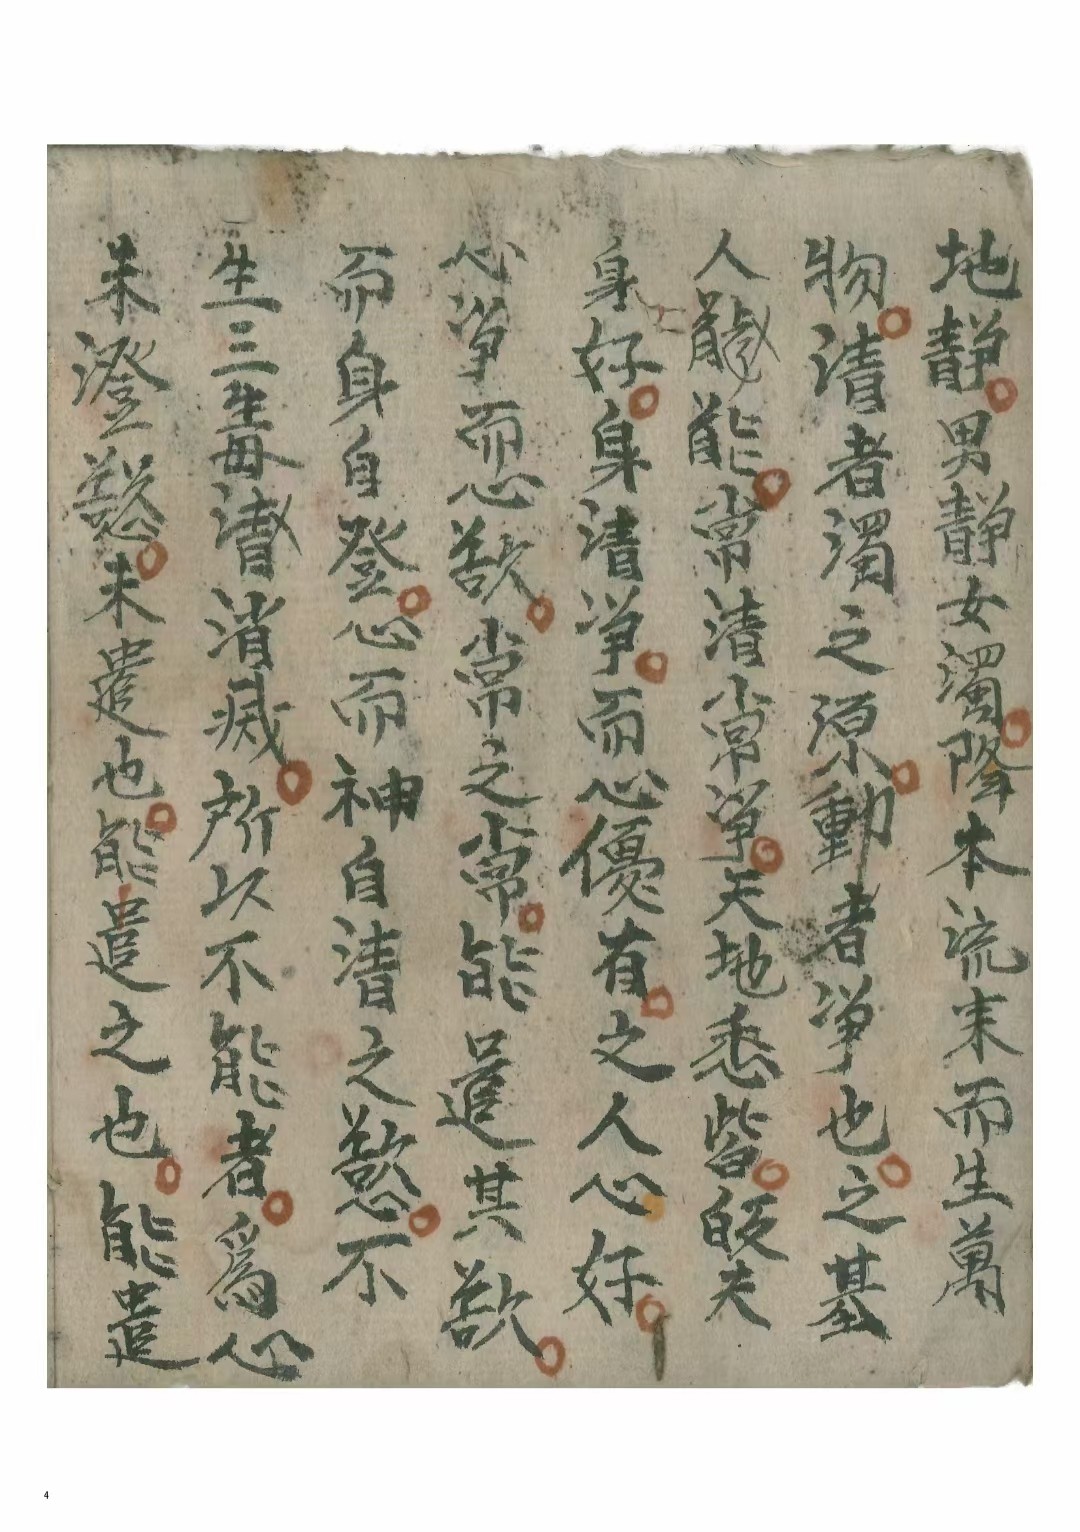 地靜男靜女濁降本流末而生萬
物清者濁之源動者淨也之基
人能能常清常淨天地悉皆皈夫
身好身清淨而心優有之人心好
心淨而惡欲常之常能遣其欲
而身自登心而神自清之慾不
生三生毒清消滅所以不能者爲心
未澄慾未遣也能遣之也能遣
4